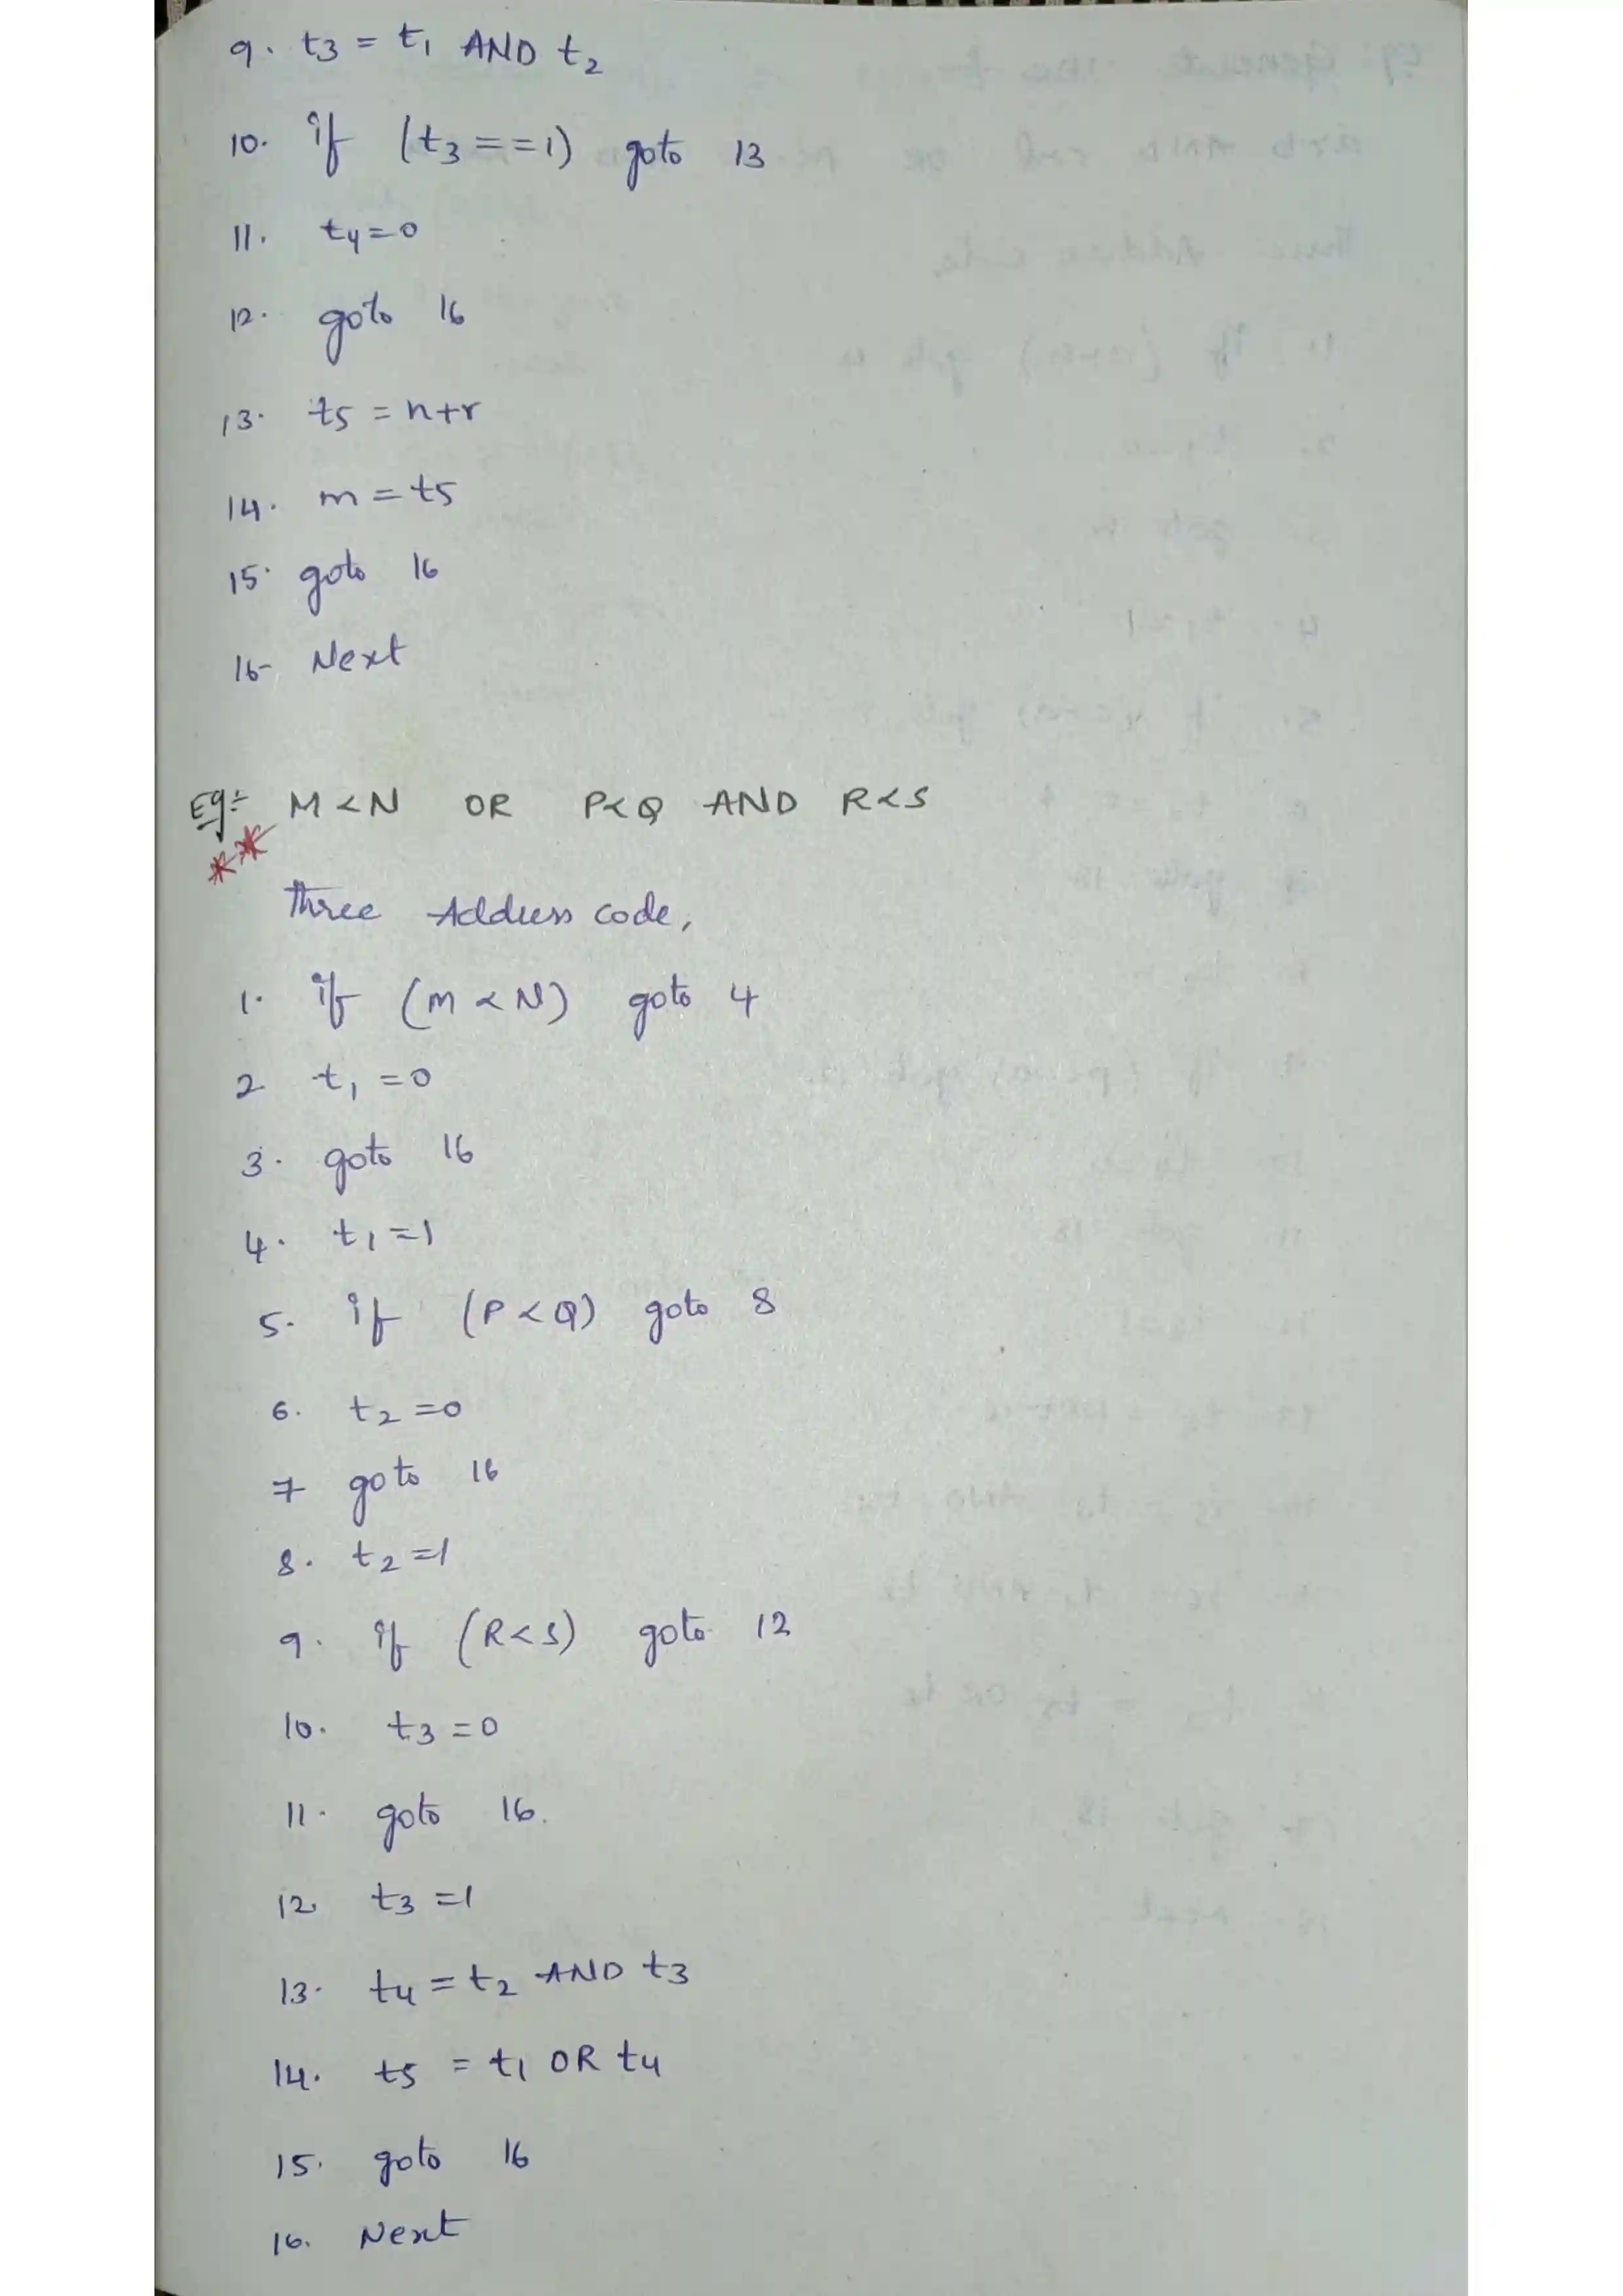 9. t3 = t1 AND t2
10. if (t3 == 1) goto 13
11. t4 = 0
12. goto 16
13. t5 = n+r
14. m = t5
15. goto 16
16- Next
Eg:- M < N OR P < Q AND R < S
**
Three Address code,
1. if (M < N) goto 4
2 t1 = 0
3. goto 16
4. t1 = 1
5. if (P < Q) goto 8
6. t2 = 0
7 goto 16
8. t2 = 1
9. if (R < S) goto 12
10. t3 = 0
11. goto 16.
12. t3 = 1
13. t4 = t2 AND t3
14. t5 = t1 OR t4
15. goto 16
16. Next